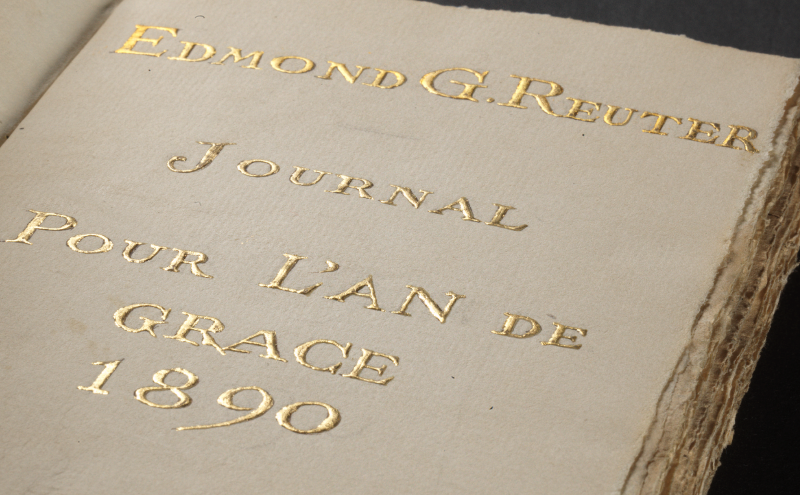 EDMOND G. REUTER
JOURNAL
POUR L'AN DE
GRACE
1890